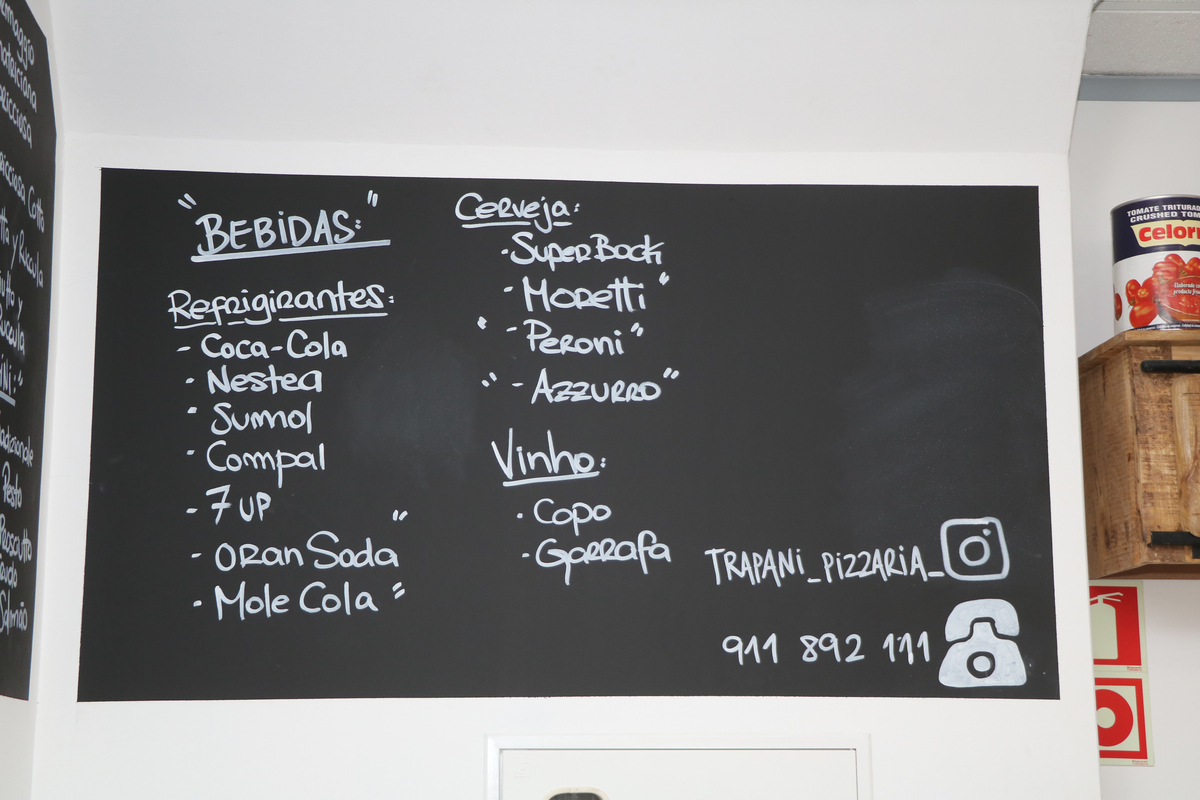 "BEBIDAS:"
Refrigirantes:
- Coca-Cola
- Nestea
- Sumol
- Compal
- 7 UP
- ORanSoda "
- Mole Cola "
Cerveja:
- SuperBock
- MoRetti "
" - PeRoni "
" - AZZURRO "
Vinho:
- Copo
- GaRRafa
TRAPANi_PiZZARiA_
911 892 111
Cotto
y Rucula
y
Rucula
Pesto
Salmão
TOMATE TRITURADO
CRUSHED TOM
Celor